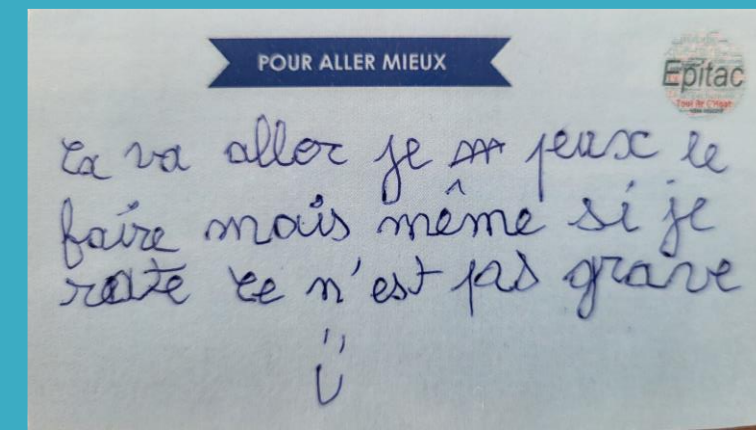 POUR ALLER MIEUX
Epitac
ça va aller je peux le
faire mais même si je
rate ce n'est pas grave